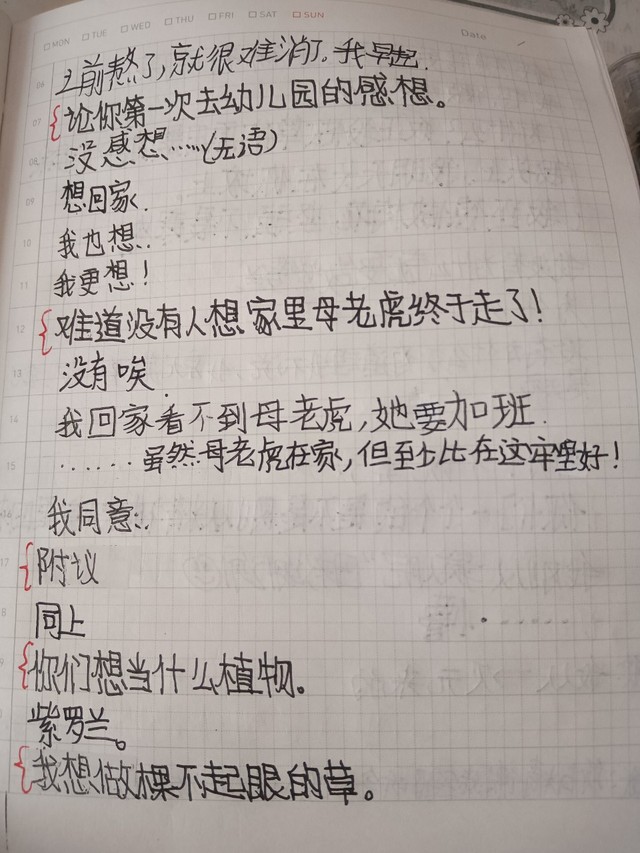 MON TUE WED THU FRI SAT SUN Date
06 之前熬了,就很难消了。我早起.
07 论你第一次去幼儿园的感想。
08 没感想……(无语)
09 想回家.
10 我也想..
11 我更想!
12 难道没有人想家里母老虎终于走了!
13 没有唉.
14 我回家看不到母老虎,她要加班.
15 ......虽然母老虎在家,但至少比在这牢里好!
我同意..
17 附议
8 同上
9 你们想当什么植物。
紫罗兰。
我想做棵不起眼的草。